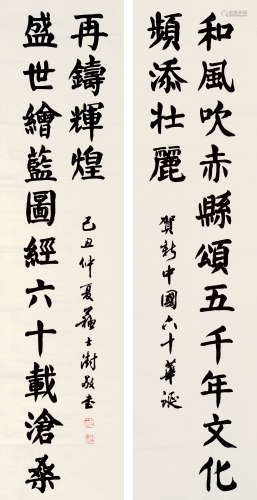 和風吹赤縣頌五千年文化
頻添壯麗
賀新中國六十華誕
盛世繪藍圖經六十載滄桑
再鑄輝煌
己丑仲夏蘇士澍敬書